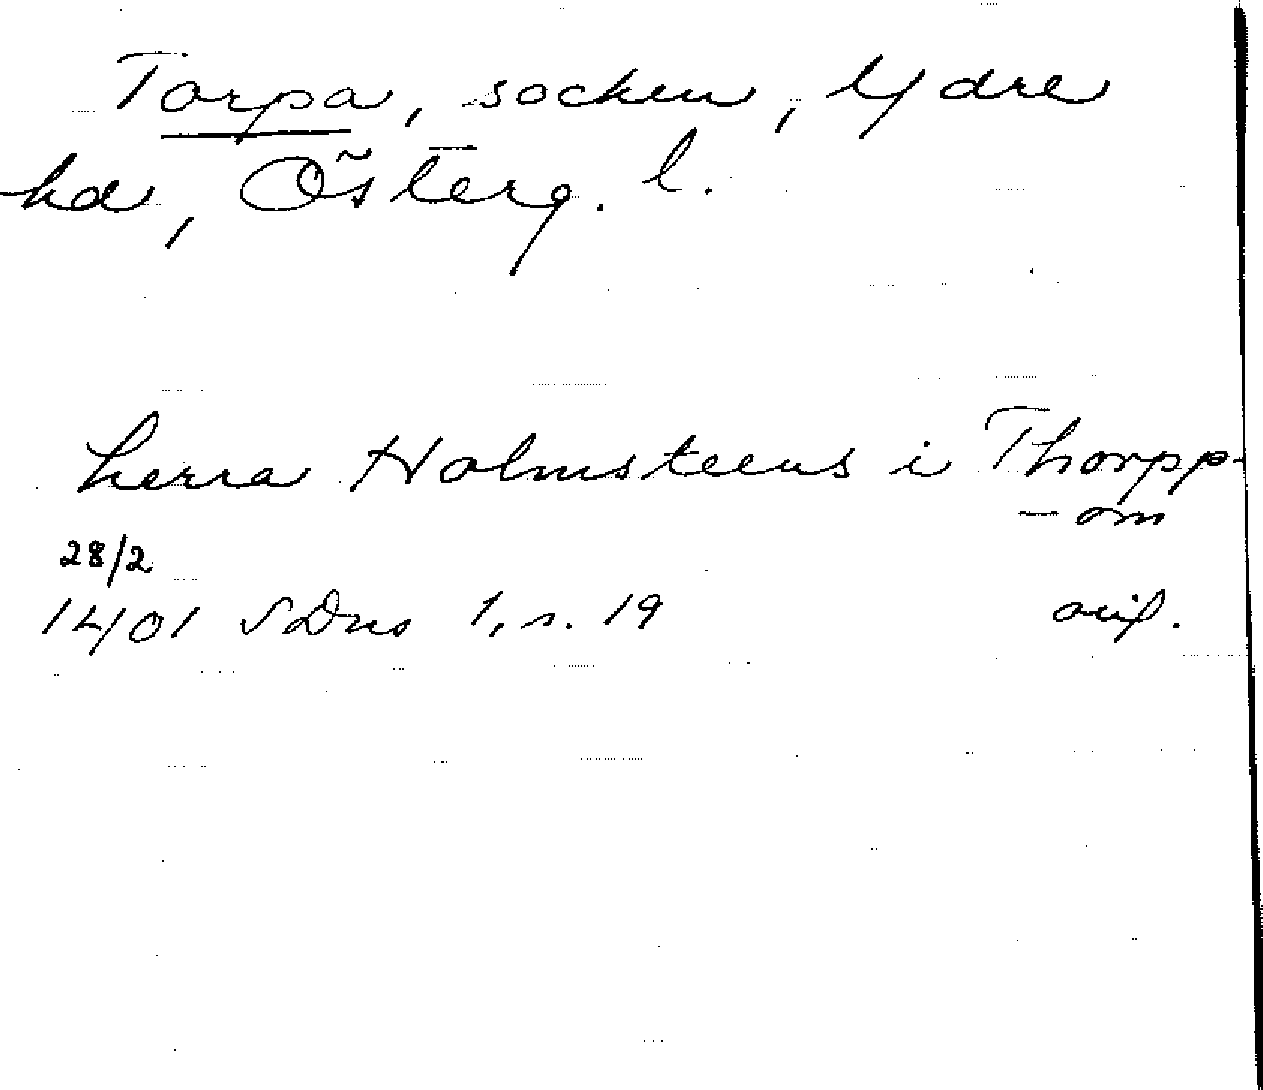 Torpa, socken, Ydre
hd, Österg. l.
herra Holmsteens i Thorpp-
- om
28/2
1401 SDns 1, s. 19